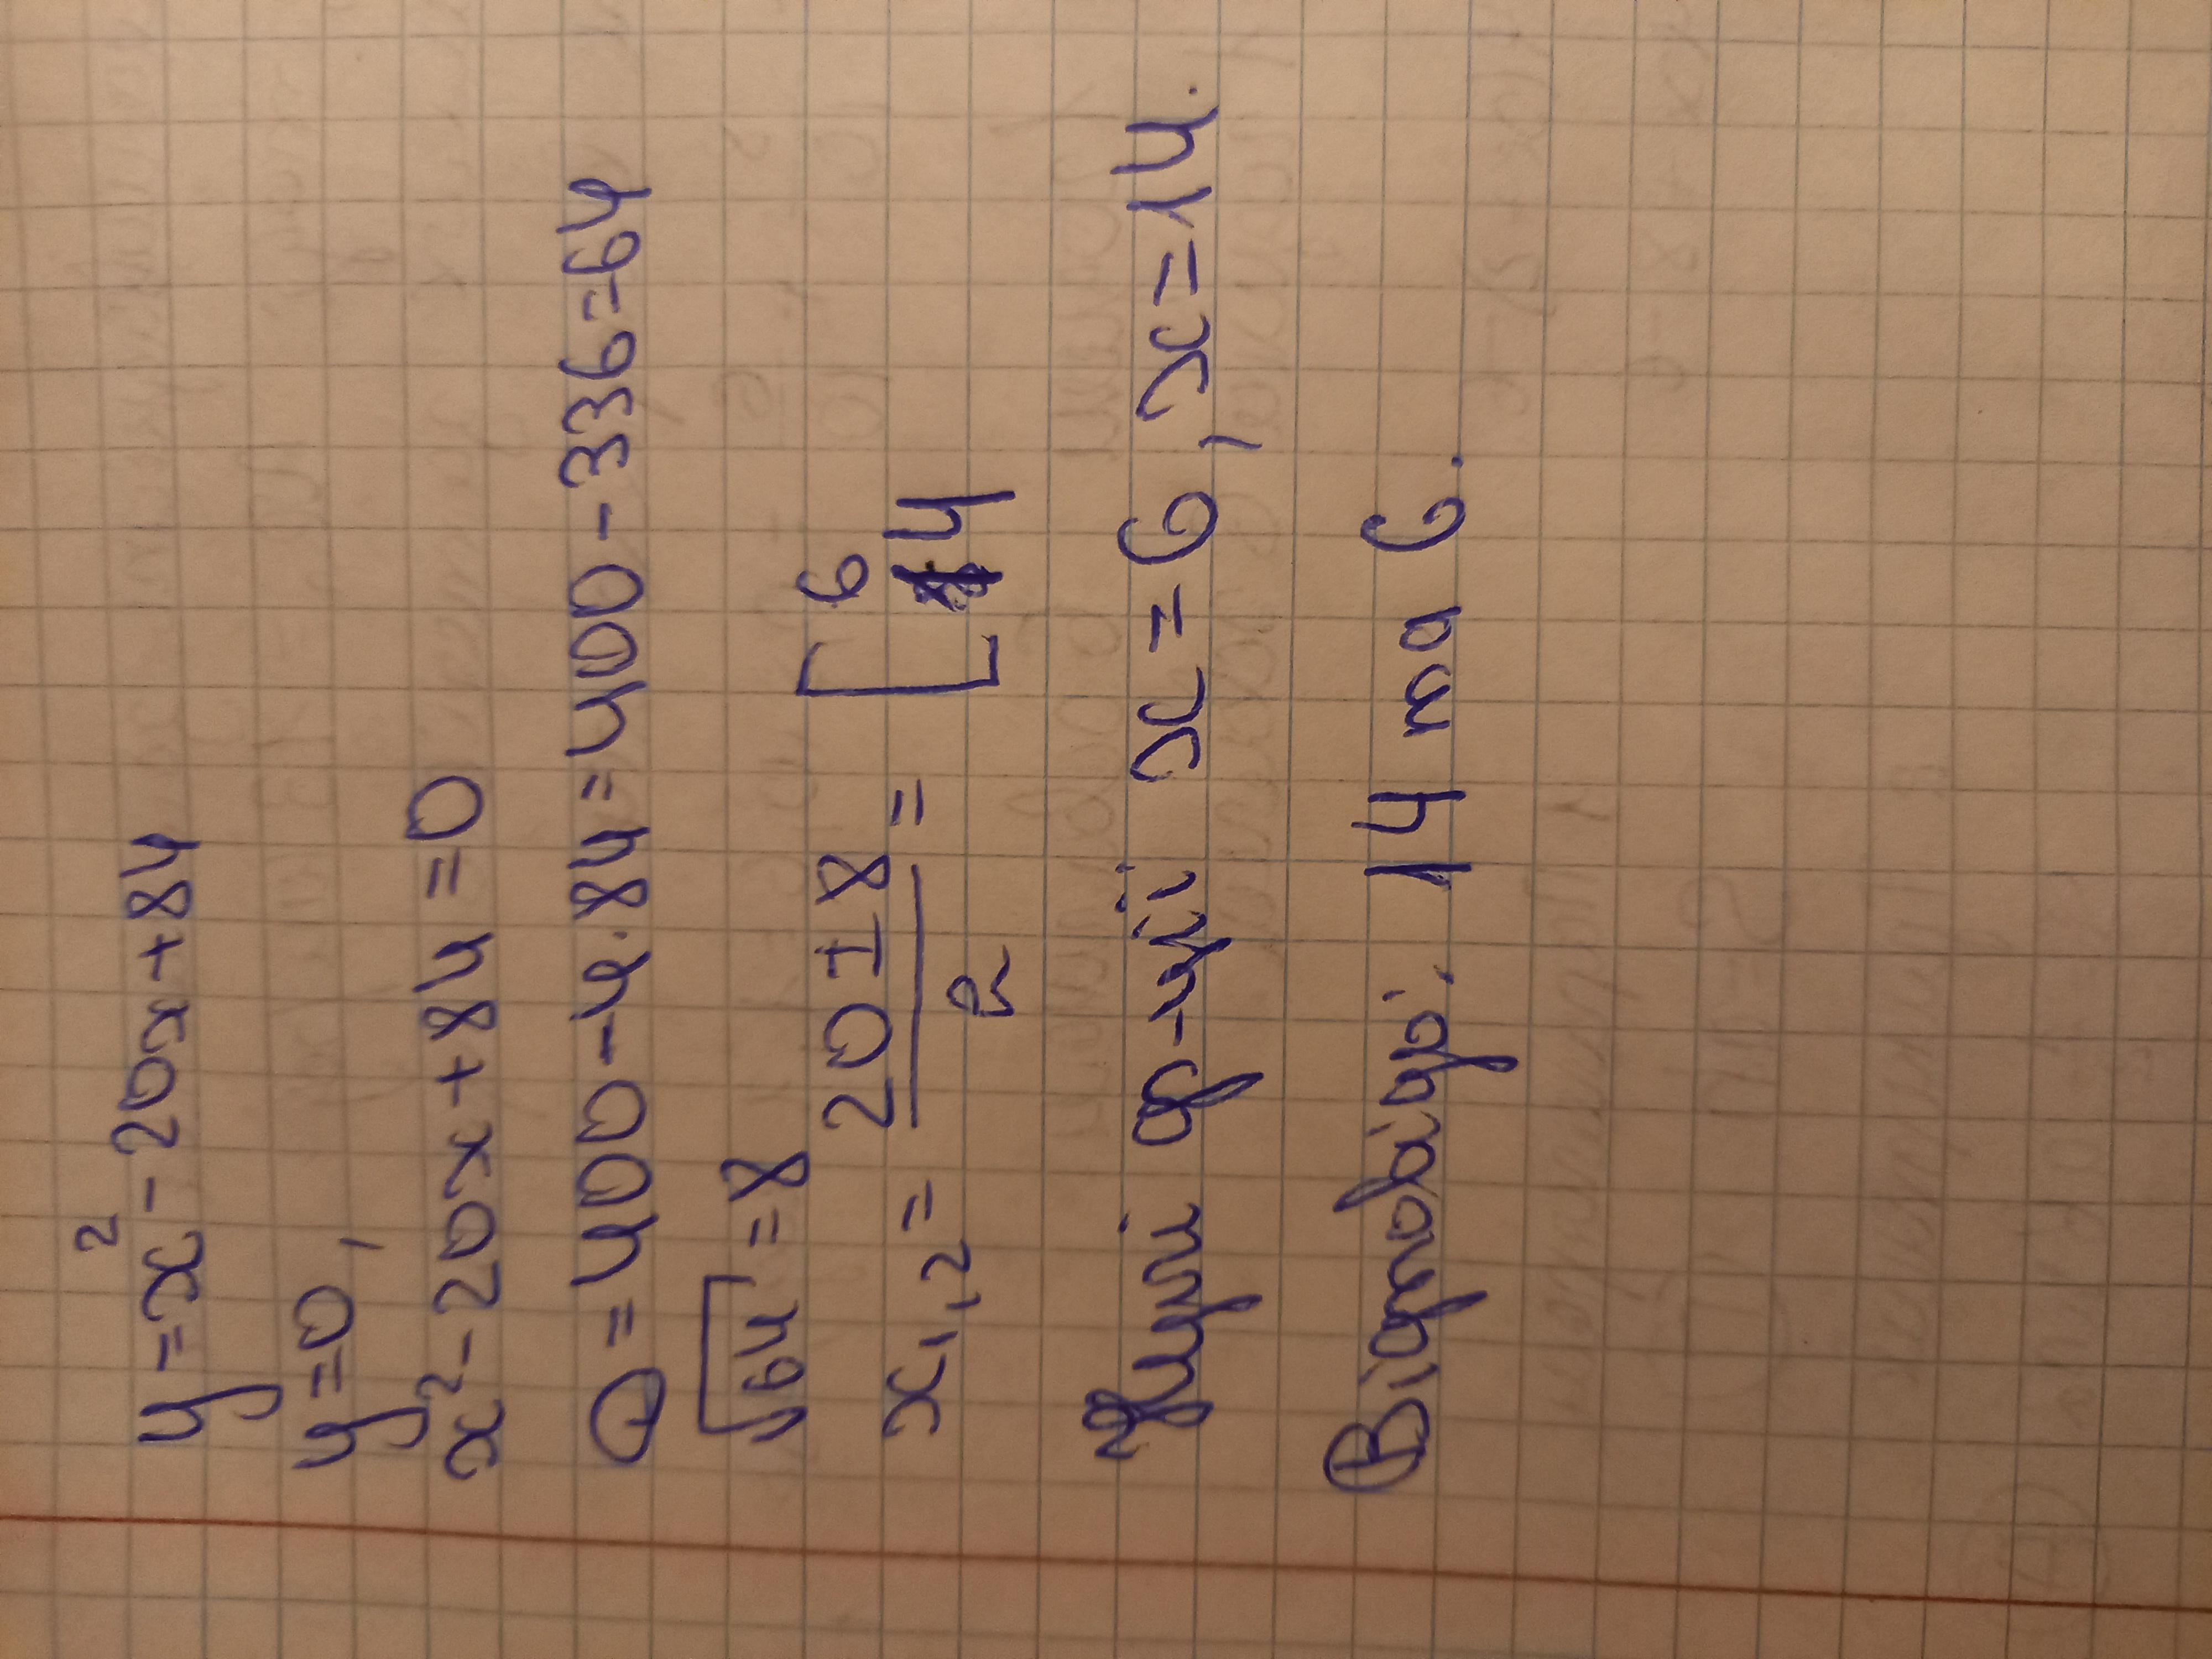 y=x²-20x+84
y=0,
x²-20x+84=0
D=400-4·84=400-336=64
√64=8
x₁,₂= (20±8)/2 = [6 14
Нулі ф-ції x=6, x=14.
Відповідь: 14 та 6.